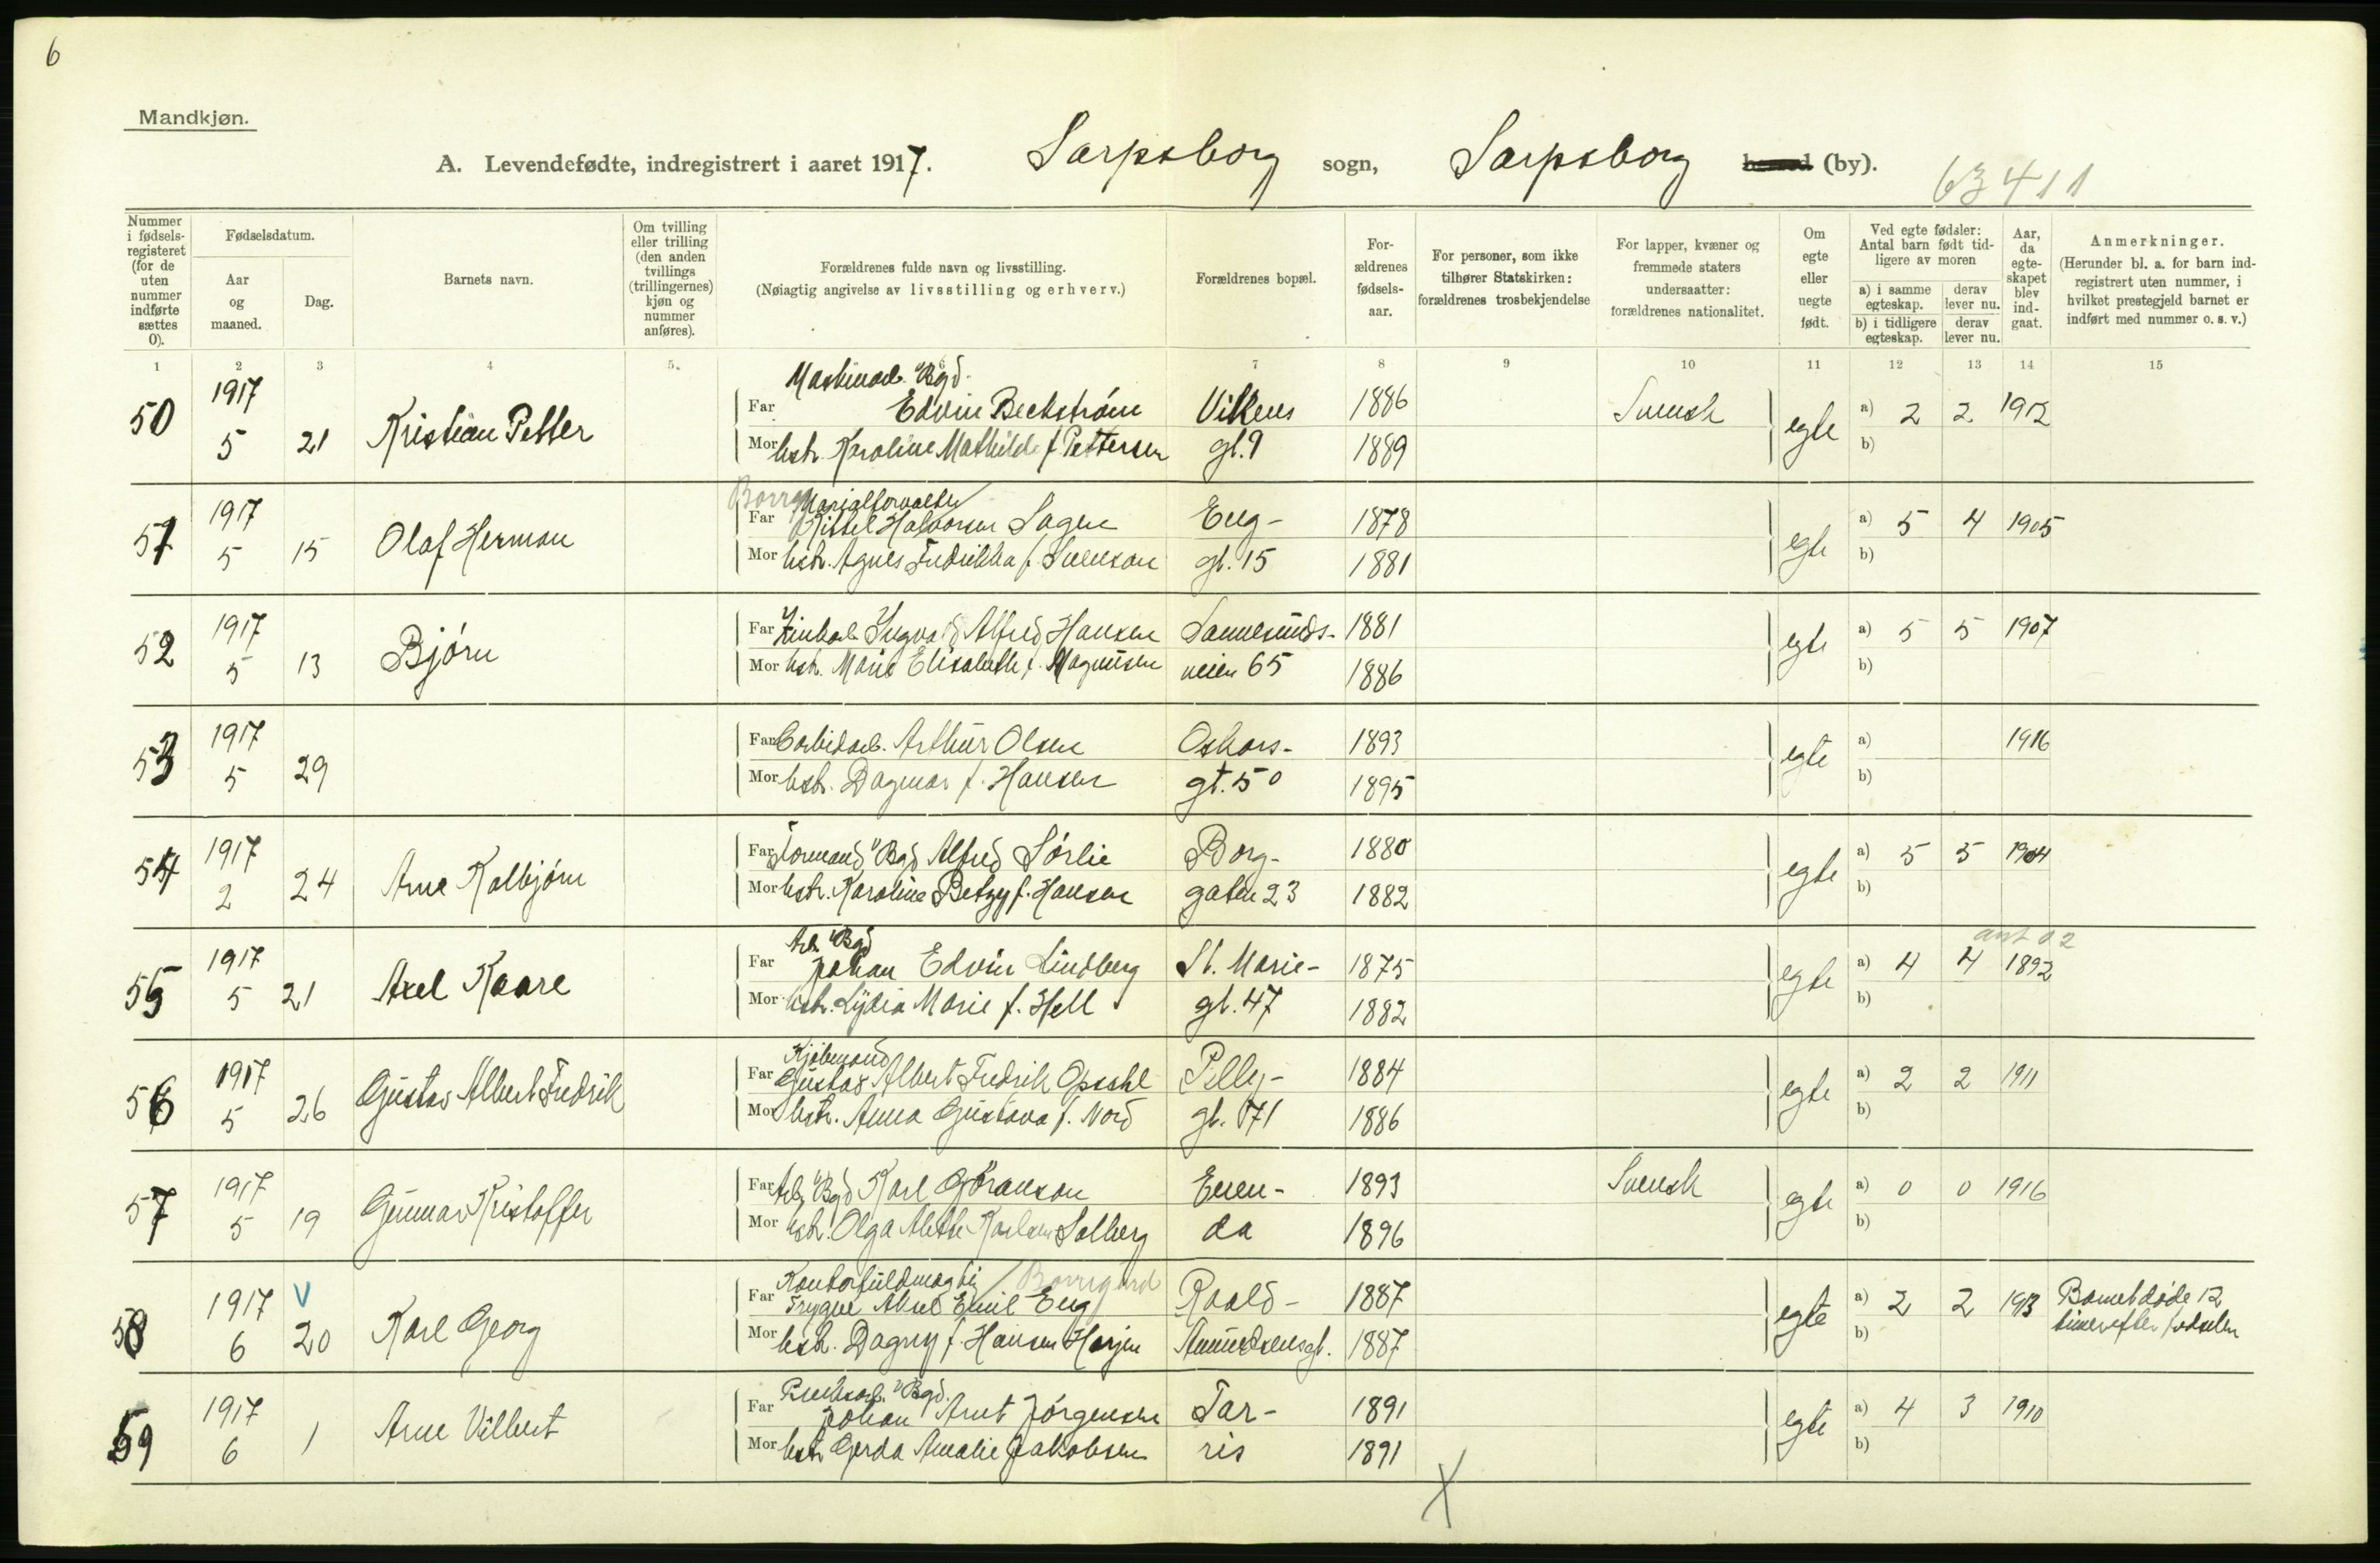 6
Mandkjøn.
A. Levendefødte, indregistrert i aaret 1917. Sarpsborg sogn, Sarpsborg herred (by). 63411
Nummer i fødselsregisteret (for de uten nummer indførte sættes 0).
Fødselsdatum.
Aar og maaned.
Dag.
Barnets navn.
Om tvilling eller trilling (den anden tvillings (trillingernes) kjøn og nummer anføres).
Forældrenes fulde navn og livsstilling.
(Nøiagtig angivelse av livsstilling og erhverv.)
Forældrenes bopæl.
Forældrenes fødselsaar.
For personer, som ikke tilhører Statskirken: forældrenes trosbekjendelse
For lapper, kvæner og fremmede staters undersaatter: forældrenes nationalitet.
Om egte eller uegte født.
Ved egte fødsler: Antal barn født tidligere av moren
a) i samme egteskap. derav lever nu.
b) i tidligere egteskap. derav lever nu.
Aar, da egteskapet blev indgaat.
Anmerkninger.
(Herunder bl. a. for barn indregistrert uten nummer, i hvilket prestegjeld barnet er indført med nummer o. s. v.)
1 2 3 4 5. 7 8 9 10 11 12 13 14 15
Maskinarb. Bgd.
50 1917 Far Edvin Beckström Vikens 1886 Svensk egte a) 2 2 1912
5 21 Kristian Petter Mor hstr. Karoline Mathilde f. Pettersen gt. 9 1889 b)
Borrg Materialforvalter
51 1917 Far Kittel Halvorsen Sagen Eng- 1878 egte a) 5 4 1905
5 15 Olaf Herman Mor hstr. Agnes Fredrikka f. Svenson gt. 15 1881 b)
52 1917 Far Zinkarb. Ingvald Alfred Hansen Sannesunds- 1881 egte a) 5 5 1907
5 13 Bjørn Mor hstr. Marie Elisabeth f. Magnusen veien 65 1886 b)
53 1917 Far Carbidarb. Arthur Olsen Oskars- 1893 egte a) 1916
5 29 Mor hstr. Dagmar f. Hansen gt. 50 1895 b)
54 1917 Far Formand Bgd Alfred Sørlie Borg- 1880 egte a) 5 5 1904
2 24 Arne Kolbjørn Mor hstr. Karoline Betzy f. Hansen gaten 23 1882 b)
Arb. Bgd
55 1917 Far Johan Edvin Lindberg St. Marie- 1875 egte a) 4 4 1892
5 21 Axel Kaare Mor hstr. Lydia Marie f. Hell gt. 47 1882 b)
Kjøbmand
56 1917 Far Gustav Albert Fredrik Opsahl Pelly- 1884 egte a) 2 2 1911
5 26 Gustav Albert Fredrik Mor hstr. Anna Gustava f. Nord gt. 71 1886 b)
57 1917 Far Arb. Bgd Karl Göranson Enen- 1893 Svensk egte a) 0 0 1916
5 19 Gunnar Kristoffer Mor hstr. Olga Alethe Karlsen Solberg da 1896 b)
Kontorfuldmægtig / Borregaard
58 1917 V Far Trygve Aksel Emil Eng Roald- 1887 egte a) 2 2 1913 Barnet døde 12
6 20 Karl Georg Mor hstr. Dagny f. Hansen Amundsensgt. 1887 b) timer efter fødselen
Bgd.
59 1917 Far Johan Arnt Jørgensen Tar- 1891 egte a) 4 3 1910
6 1 Arne Vilbert Mor hstr. Gerda Amalie Jakobsen ris 1891 b)
X